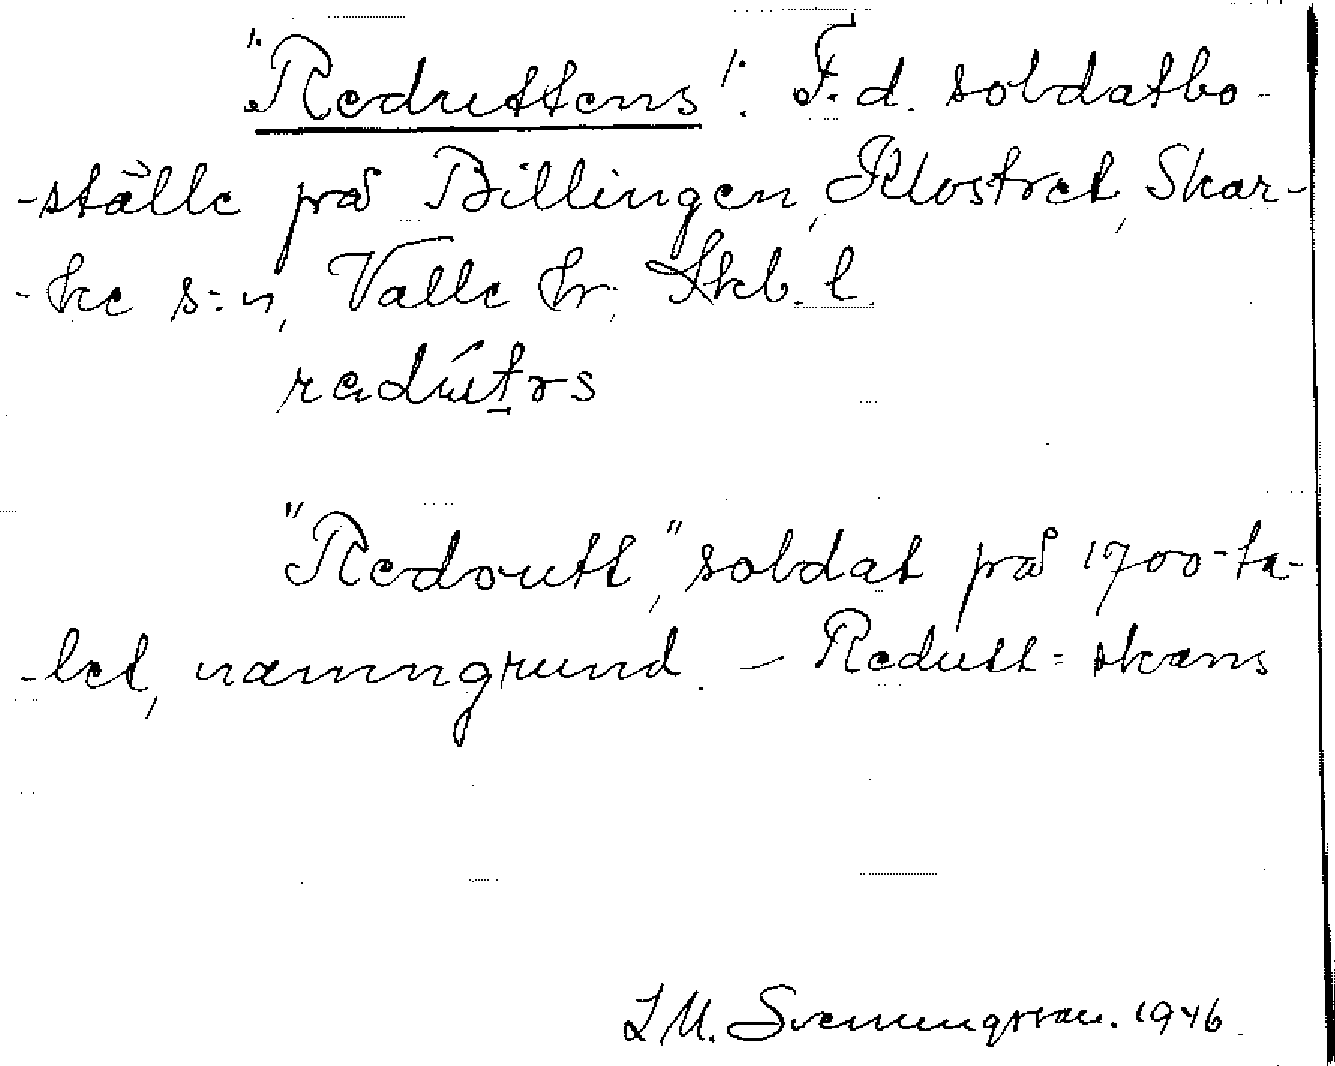 "Reduttens": F.d. soldatbo-
-ställe på Billingen, Klostret, Skar-
-ke s:n, Valle hr, Skb. l.
"Redoutt," soldat på 1700-ta-
-let, namngrund. – Redutt = skans
I M. Svenungsson. 1946